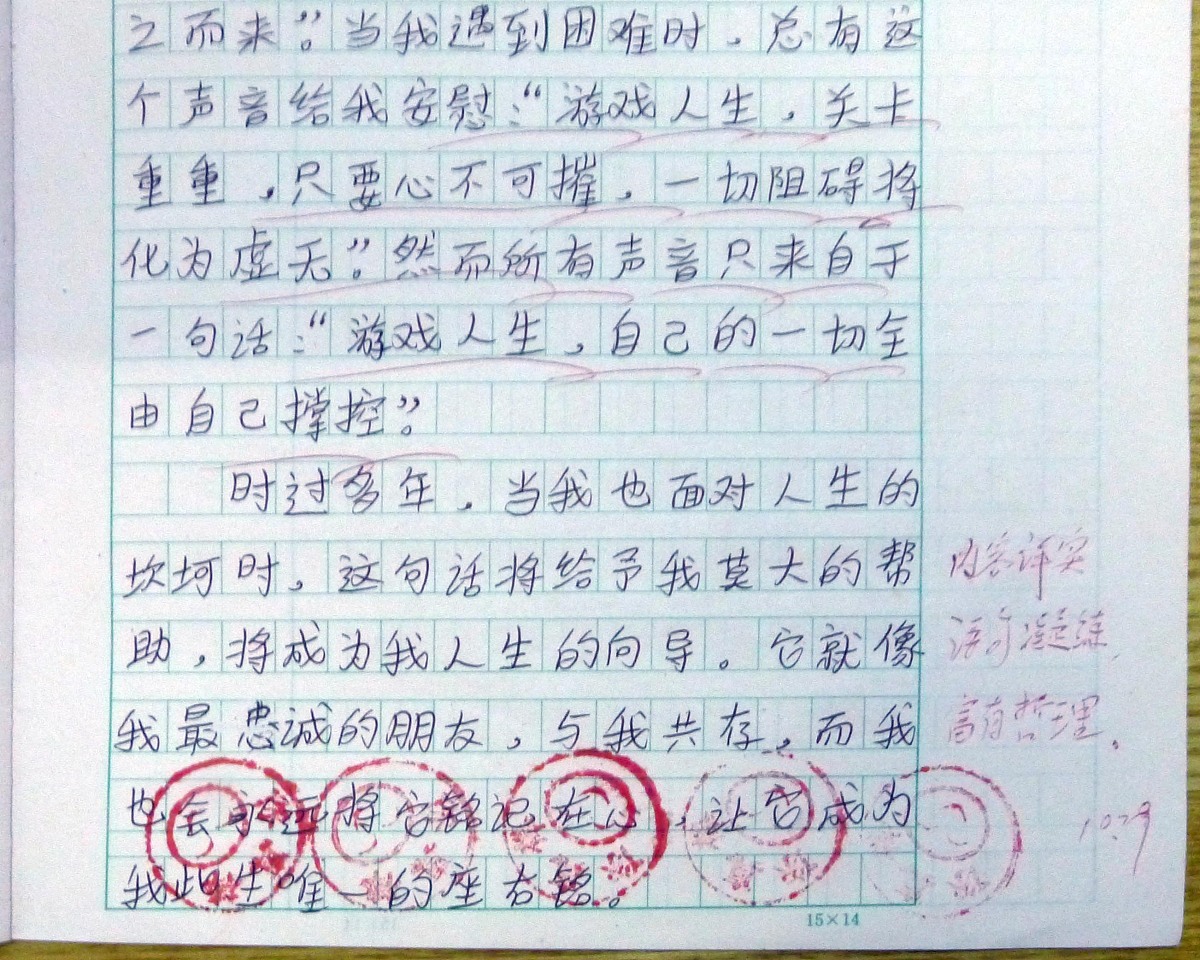 之而来”。当我遇到困难时，总有这
个声音给我安慰：“游戏人生，关卡
重重，只要心不可摧，一切阻碍将
化为虚无”。然而所有声音只来自于
一句话：“游戏人生，自己的一切全
由自己撑控”。
时过多年，当我也面对人生的
坎坷时，这句话将给予我莫大的帮
助，将成为我人生的向导。它就像
我最忠诚的朋友，与我共存，而我
也会永远将它铭记在心，让它成为
我此生唯一的座右铭。
内容详实
语句凝练，
富有哲理。
10.29
15×14